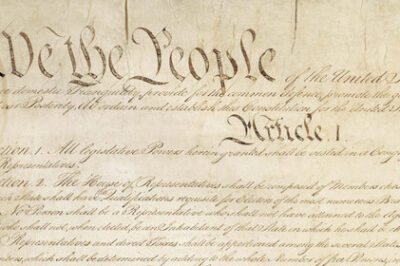 We the People of the United
domestic Tranquility, provide for the common defence, promote the
our Posterity, do ordain and establish this Constitution for the United
Article. I.
Section. 1. All legislative Powers herein granted shall be vested in a
Representatives.
Section. 2. The House of Representatives shall be composed of Members
State shall have Qualifications requisite for Electors of the most numerous
No Person shall be a Representative who shall not have attained to the
who shall not, when elected, be an Inhabitant of that State in which he shall be
Representatives and direct Taxes shall be apportioned among the several
which shall be determined by adding to the whole Number of free Persons,